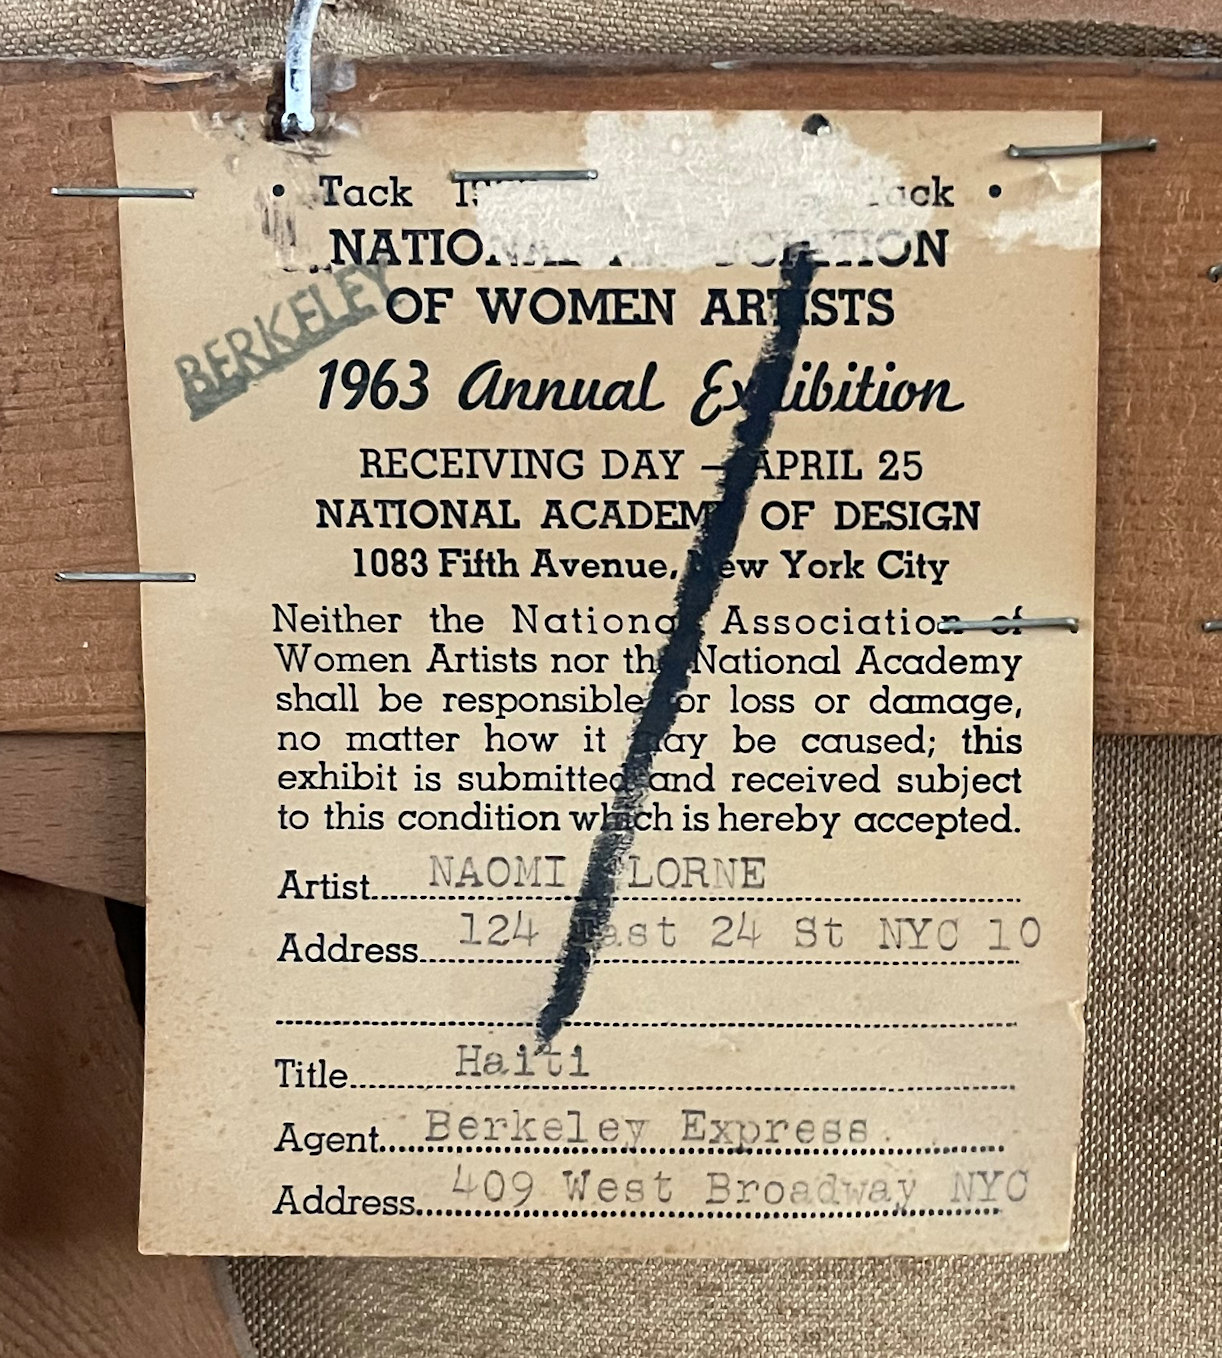 • Tack ack •
NATIONAL ASSOCIATION
OF WOMEN ARTISTS
BERKELEY
1963 Annual Exhibition
RECEIVING DAY — APRIL 25
NATIONAL ACADEMY OF DESIGN
1083 Fifth Avenue, New York City
Neither the National Association of
Women Artists nor the National Academy
shall be responsible for loss or damage,
no matter how it may be caused; this
exhibit is submitted and received subject
to this condition which is hereby accepted.
Artist NAOMI LORNE
Address 124 East 24 St NYC 10
Title Haiti
Agent Berkeley Express
Address 409 West Broadway NYC